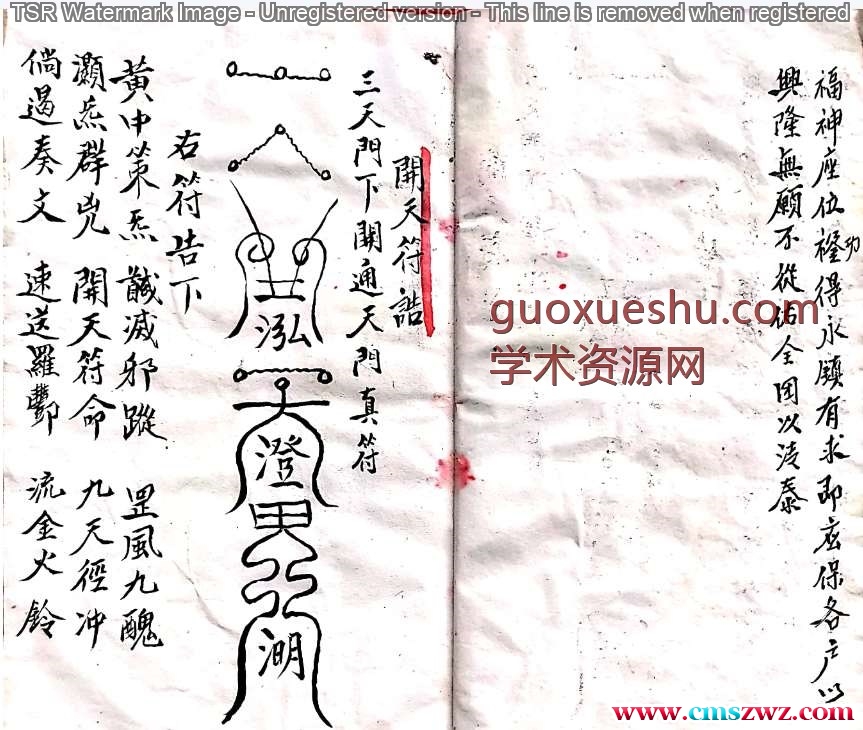 TSR Watermark Image - Unregistered version - This line is removed when registered
福神座位 得永鎮有求即應保各戶以
興隆無願不從佑全国以清泰
guoxueshu.com
学术资源网
開天符誥
三天門下開通天門真符
泓
澄
湖
右符告下
黃中策炁 馘滅邪蹤 罡風九醜
灝炁群兇 開天符命 九天徑冲
倘遏奏文 速送羅酆 流金火鈴
www.cmszwz.com